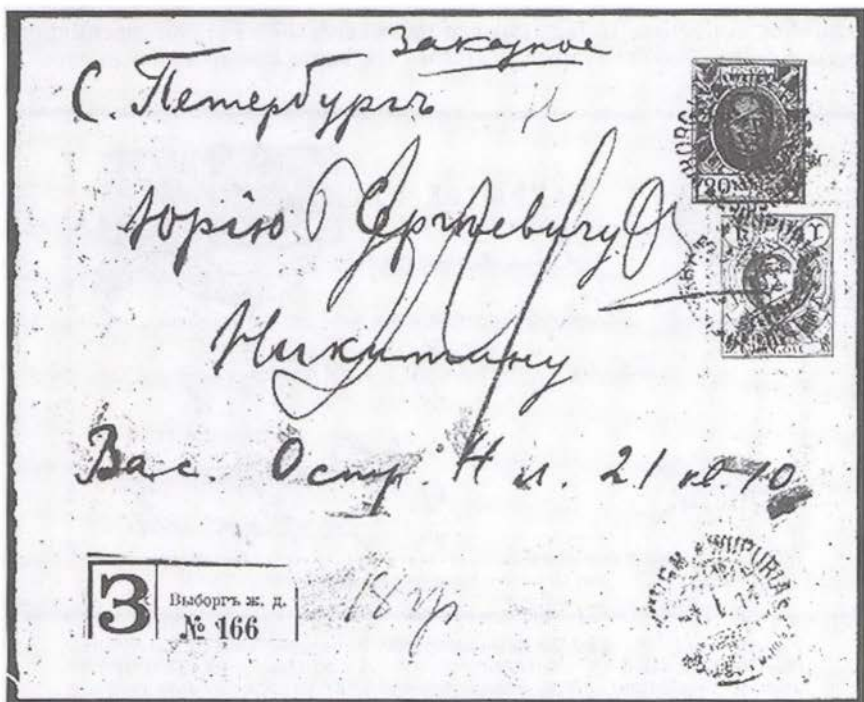 Заказное
С. Петербургъ
Юрію Сергѣевичу
Никитину
Вас. Остр. 4 л. 21 кв 10
20
З
Выборгъ ж. д.
№ 166
18 гр
WIIPURI